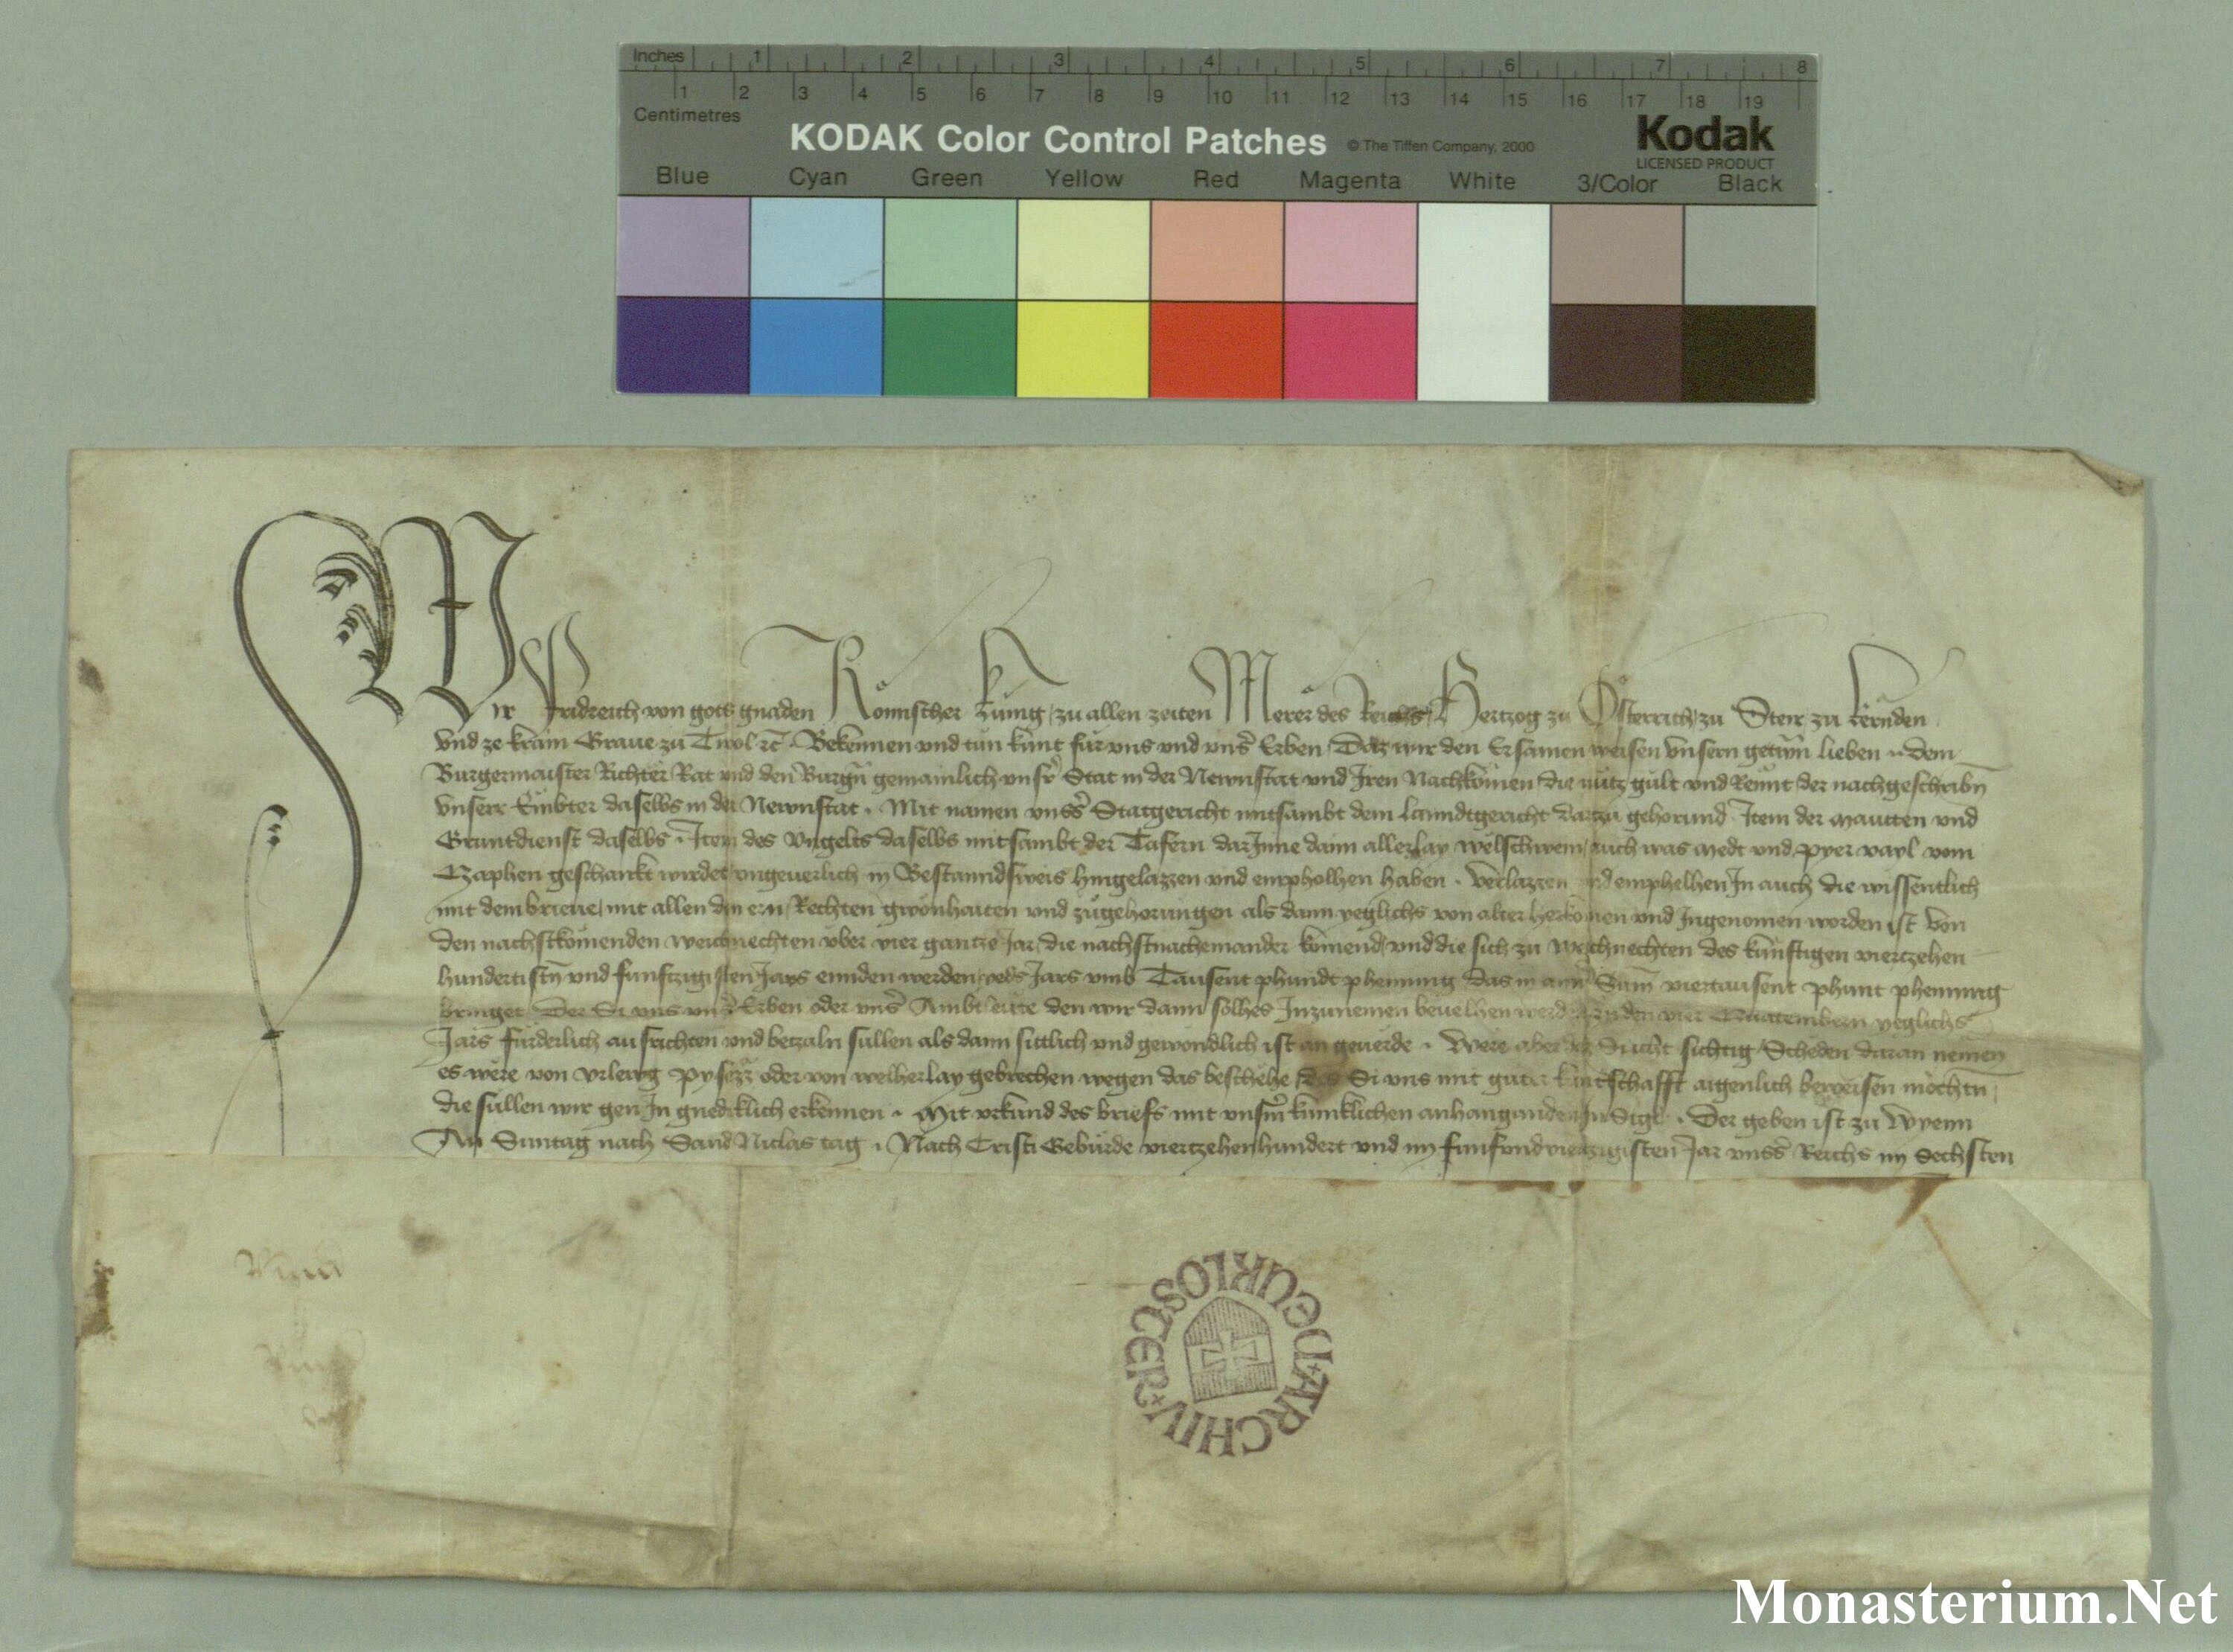 Inches 1 2 3 4 5 6 7 8
1 2 3 4 5 6 7 8 9 10 11 12 13 14 15 16 17 18 19
Centimetres
KODAK Color Control Patches © The Tiffen Company, 2000 Kodak
LICENSED PRODUCT
Blue Cyan Green Yellow Red Magenta White 3/Color Black
Wir Fridreich von gots gnaden Römischer Kunig zu allen zeiten Merer des Reichs Hertzog zu Österreich zu Steir zu Kernden
vnd ze krain Graue zu Tirol etc. Bekennen und tun kunt für uns und unser Erben Daz wir den Ersamen weisen unsern getrewn lieben .. dem
Burgermaister Richter Rat und den Burgern gemainlich unserer Stat in der Newnstat und Iren Nachkomen die nutz gult und Rennt der nachgeschribn
unserr Embter daselbs in der Newnstat . Mit namen unsers Statgericht mitsambt dem lanndtgericht dartzu gehorund Item der Mautten und
Gruntdienst daselbs . Item des ungelts daselbs mitsambt der Tafern darInne dann allerlay welschwein auch was Medt und Pyer vayl vom
Zaphen geschankt wirdet ungeuerlich in Bestanndsweis hingelazzen und empholhen haben . verlazzen und emphelhen In auch die wissentlich
mit dem brieue mit allen den ern Rechten gwonhaiten und zugehorungen als dann yeglichs von alter herkomen und Ingenomen worden ist von
den nachstkomenden weichnechten uber vier gantze Jar die nachstnacheinander komend und die sich zu weichnechten des kunftigen viertzehen
hundertistn und funftzigisten Jars ennden werden yeds Jars umb Tausent phundt phenning das in ainer Summ viertausent phunt phenning
bringet Der Si uns unsern Erben oder unsern Ambtleute den wir dann solhes Inzunemen beuelhen werden zu den vier Quatembern yeglichs
Jars fürderlich ausrichten und betzaln sullen als dann sittlich und gewondlich ist an geuerde . Were aber daz Si icht sichtig Scheden daran nemen
es were von urleug Pysezz oder von welherlay gebrechen wegen das beschehe des Si uns mit guter kuntschafft aigenlich beweisen mochtn
die sullen wir gen In gnediklich erkennen . Mit urkund des briefs mit unserm kunklichen anhangunden InSigl . Der geben ist zu Wyenn
An Sunntag nach Sand Niclas tag . Nach Cristi Geburde viertzehenhundert und im funfundviertzigisten Jar unsers Reichs im Sechsten
ARCHIV NEUKLOSTER
Monasterium.Net